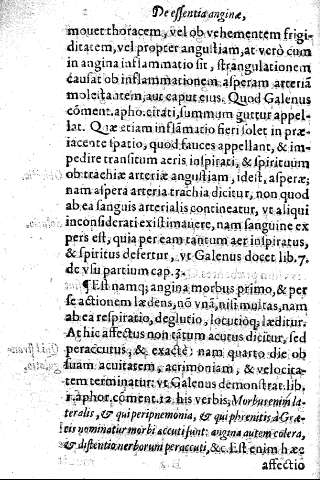 De essentia anginæ,
mouet thoracem, vel ob vehementem frigi-
ditatem, vel propter angustiam, at verò cùm
in angina inflammatio sit, strangulationem
causat ob inflammationem asperam arteriã
molestantem, aut caput eius. Quod Galenus
cõment. apho. citati, summum guttur appel-
lat. Quæ etiam inflãmatio fieri solet in præ-
iacente spatio, quod fauces appellant, & im-
pedire transitum aeris inspirati, & spirituum
ob trachiæ arteriæ angustiam, idest, asperæ;
nam aspera arteria trachia dicitur, non quod
ab ea sanguis arterialis contineatur, vt aliqui
inconsiderati existimauere, nam sanguine ex
pers est, quia per eam tantum aer inspiratus,
& spiritus defertur, vt Galenus docet lib. 7.
de vsu partium cap. 3.
¶ Est namq; angina morbus primo, & per
se actionem lædens, nõ vnã, nisi multas, nam
ab ea respiratio, deglutio, locutioq; læditur.
At hic affectus non tãtum acutus dicitur, sed
peraccutus, & exactè: nam quarto die ob
suam acuitatem, acrimoniam, & velocita-
tem terminatur: vt Galenus demonstrat lib,
1. aphor. cõment. 12. his verbis, Morbus enim la-
teralis, & qui peripnemonia, & qui phrænitis à Græ-
cis nominatur morbi accuti sunt: angina autem colera,
& distentio neruorum peraccuti, &c. Est enim hæc
affectio